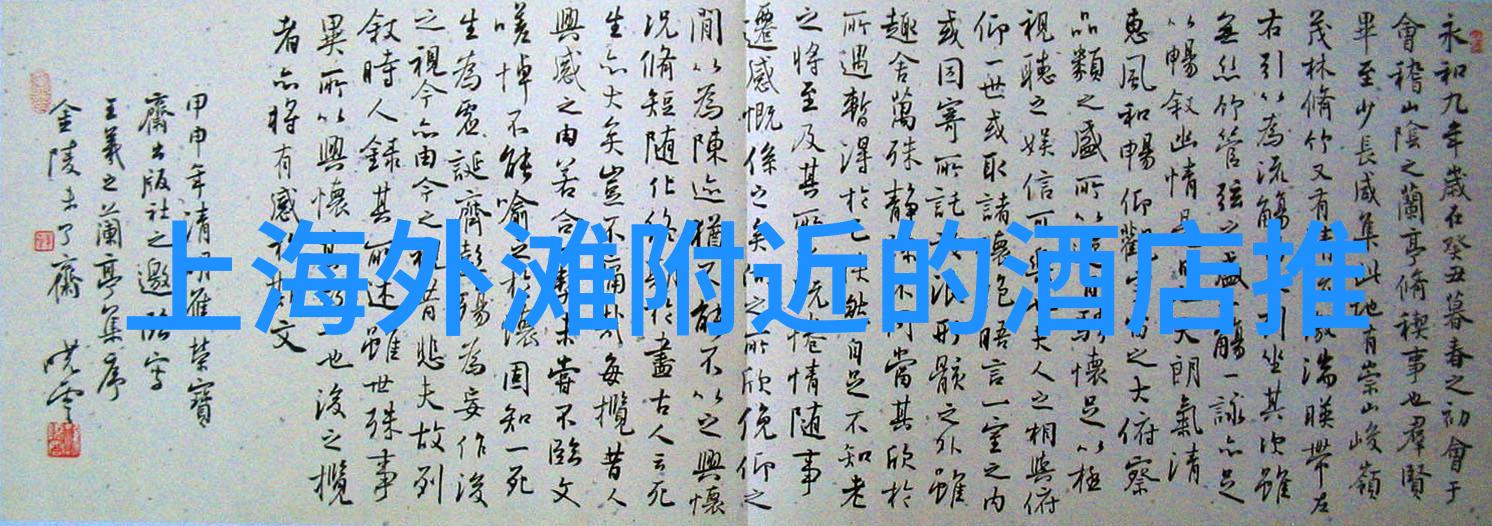 上海外滩附近的酒店推
永和九年歲在癸丑暮春之初會于
會稽山陰之蘭亭脩稧事也羣賢
畢至少長咸集此地有崇山峻嶺
茂林脩竹又有清流激湍暎帶左
右引以為流觴曲水列坐其次雖
無絲竹管弦之盛一觴一詠亦足
以暢敘幽情是日也天朗氣清
惠風和暢仰觀宇宙之大俯察
品類之盛所以遊目騁懷足以極
視聽之娛信可樂也夫人之相與俯
仰一世或取諸懷抱晤言一室之內
或因寄所託放浪形骸之外雖
趣舍萬殊靜躁不同當其欣於
所遇暫得於己快然自足不知老
之將至及其所之既惓情隨事
遷感慨係之矣向之所欣俛仰之
閒以為陳迹猶不能不以之興懷
況脩短隨化終期於盡古人云死
生亦大矣豈不痛哉每攬昔人
興感之由若合一契未嘗不臨文
嗟悼不能喻之於懷固知一死
生為虛誕齊彭殤為妄作後
之視今亦由今之視昔悲夫故列
敘時人錄其所述雖世殊事
異所以興懷其致一也後之攬
者亦將有感於斯文
甲申年清明應榮寶
齋出版社之邀臨寫
王羲之蘭亭集序
金陵未了齋